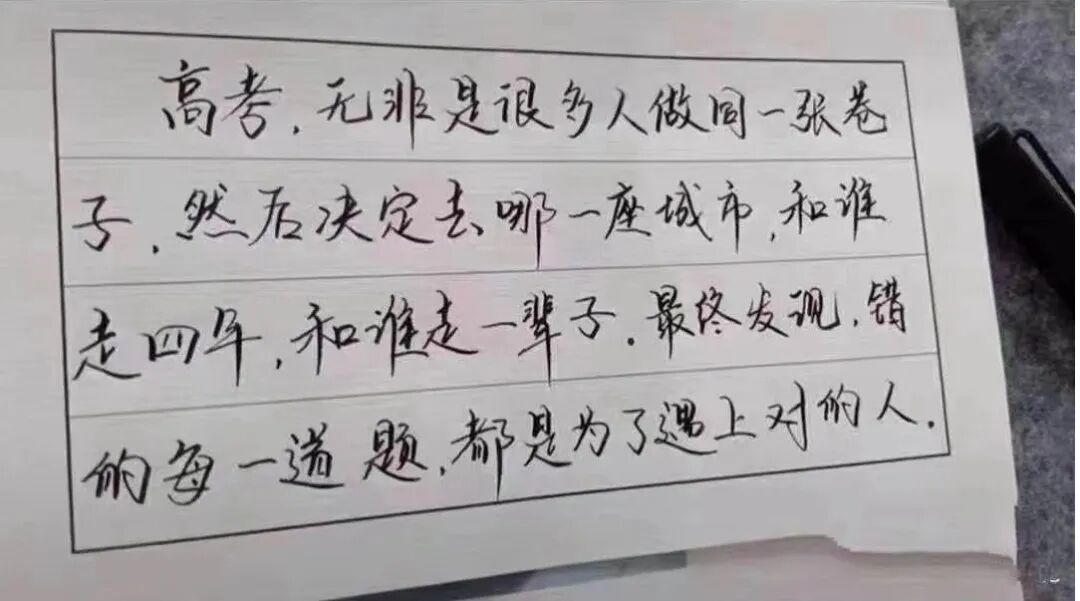 高考，无非是很多人做同一张卷
子，然后决定去哪一座城市，和谁
走四年，和谁走一辈子。最终发现，错
的每一道题，都是为了遇上对的人。